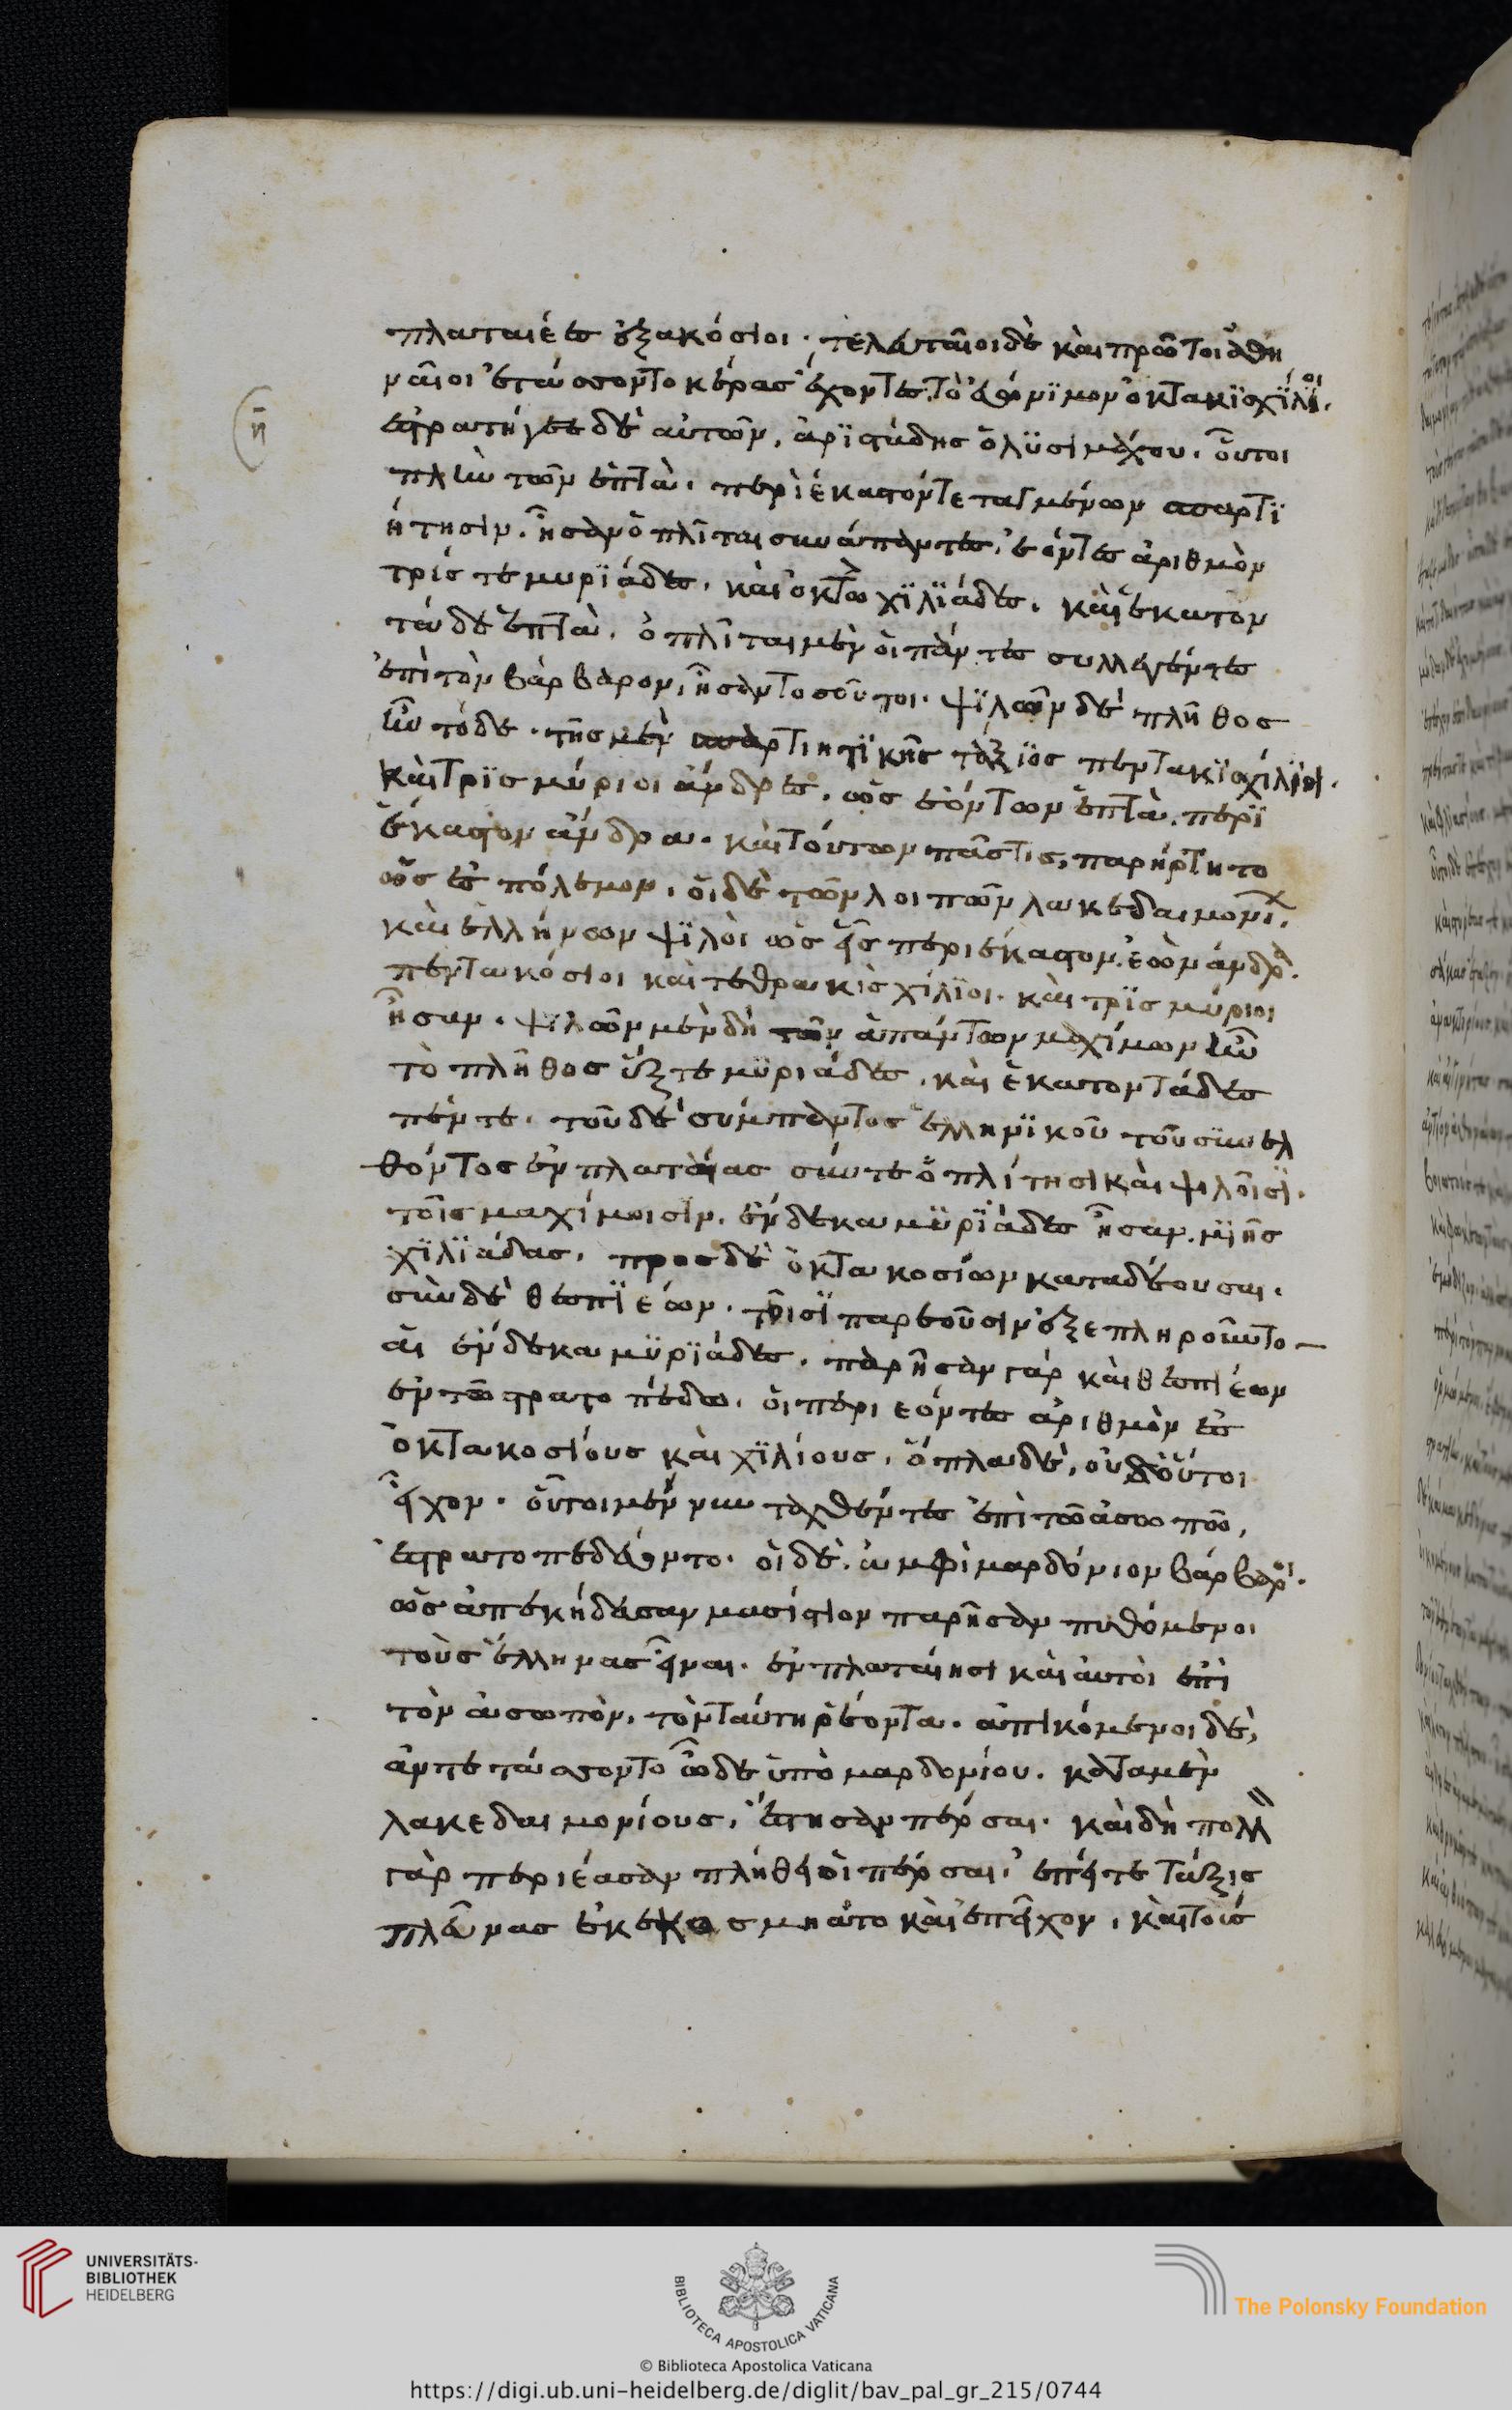 πλαταιέες ἑξακόσιοι. τελευταῖοι δὲ καὶ πρῶτοι ἀθη
ναῖοι ἐτάσσοντο κέρας ἔχοντες τὸ εὐώνϋμον ὀκτακϊσχίλϊοι.
ἐστρατήγεε δὲ αὐτῶν, ἀρϊστείδης ὁ λϋσιμάχου. οὗτοι
πλὴν τῶν ἑπτὰ. περὶ ἕκαστόν τεταγμένων σπαρτϊ
ήτησιν. ἦσαν ὁπλῖται συνάπαντες. ἐόντες ἀριθμὸν
τρίς τε μυρϊάδες. καὶ ὀκτὼ χϊλϊάδες. καὶ ἑκατὸν
τάδε ἑπτὰ. ὁπλῖται μὲν οἱ πάντες συλλεγέντες
ἐπὶ τὸν βάρβαρον, ἦσαν τοσοῦτοι. ψϊλῶν δὲ πλῆθος
ἦν τόδε. τῆς μὲν σπαρτιητϊκῆς τάξϊος πεντακϊσχίλϊοι.
καὶ τρϊσμύριοι ἄνδρες. ὡς ἐόντων ἑπτὰ. περϊ
ἕκαστον ἄνδρα. καὶ τούτων πᾶς τις, παρήρτητο
ὡς ἐς πόλεμον. οἱ δὲ τῶν λοιπῶν λακεδαιμονί.
καὶ ἑλλήνων ψϊλοὶ ὡς εἷς περὶ ἕκαστον. ἐὼν ἄνδρα.
πεντακόσιοι καὶ τετρακὶσχίλϊοι. καὶ τρϊσμύριοι
ἦσαν. ψϊλῶν μὲν δὴ τῶν ἁπάντων μαχίμων ἦν
τὸ πλῆθος ἕξ τε μϋριάδες. καὶ ἑκατοντάδες
πέντε. τοῦ δὲ σύμπαντος ἑλληνϊκοῦ τοῦ συνελ
θόντος ἐν πλαταίας σύν τε ὁπλίτησι καὶ ψιλοῖσϊ.
τοῖς μαχίμοισϊν. ἕνδεκα μϋρϊάδες ἦσαν. μϊῆς
χϊλϊάδας. προς δὲ ὀκτακοσίων καταδέουσαι.
σὺν δὲ θεσπϊέων. τοῖσϊ παρεοῦσιν ἐξεπληροῦντο
αἱ ἕνδεκα μϋρϊάδες. παρῆσαν γὰρ καὶ θεσπιέων
ἐν τῶ στρατοπέδω. οἱ περιεόντες ἀριθμὸν ἐς
ὀκτακοσίους καὶ χϊλίους. ὅπλα δὲ, οὐδ οὗτοι
εἶχον. οὗτοι μέν νυν ταχθέντες ἐπὶ τῶ ἀσωπῶ,
ἐστρατοπεδεύοντο. οἱ δὲ. ἀμφὶ μαρδόνιον βάρβαροι.
ὡς ἀπεκήδευσαν μασίστιον παρῆσαν πυθόμενοι
τοὺς ἕλληνας εἶναι. ἐν πλαταιῆσι καὶ αὐτοὶ ἐπὶ
τὸν ἀσωπὸν. τὸν ταύτη ῥέοντα. ἀπικόμενοι δὲ,
ἀντετάσσοντο ὧδε ὑπὸ μαρδονίου. κατα μὲν
λακεδαιμονίους, ἔστησαν πέρσαι. καὶ δὴ πολλὸν
γὰρ περιέασαν πλήθεϊ οἱ πέρσαι. ἐπί τε τάξις
πλεῦνας ἐκεκοσμηάτο καὶ ἐπεῖχον. καὶ τοὺς
η
UNIVERSITÄTS-
BIBLIOTHEK
HEIDELBERG
BIBLIOTECA APOSTOLICA VATICANA
The Polonsky Foundation
© Biblioteca Apostolica Vaticana
https://digi.ub.uni-heidelberg.de/diglit/bav_pal_gr_215/0744